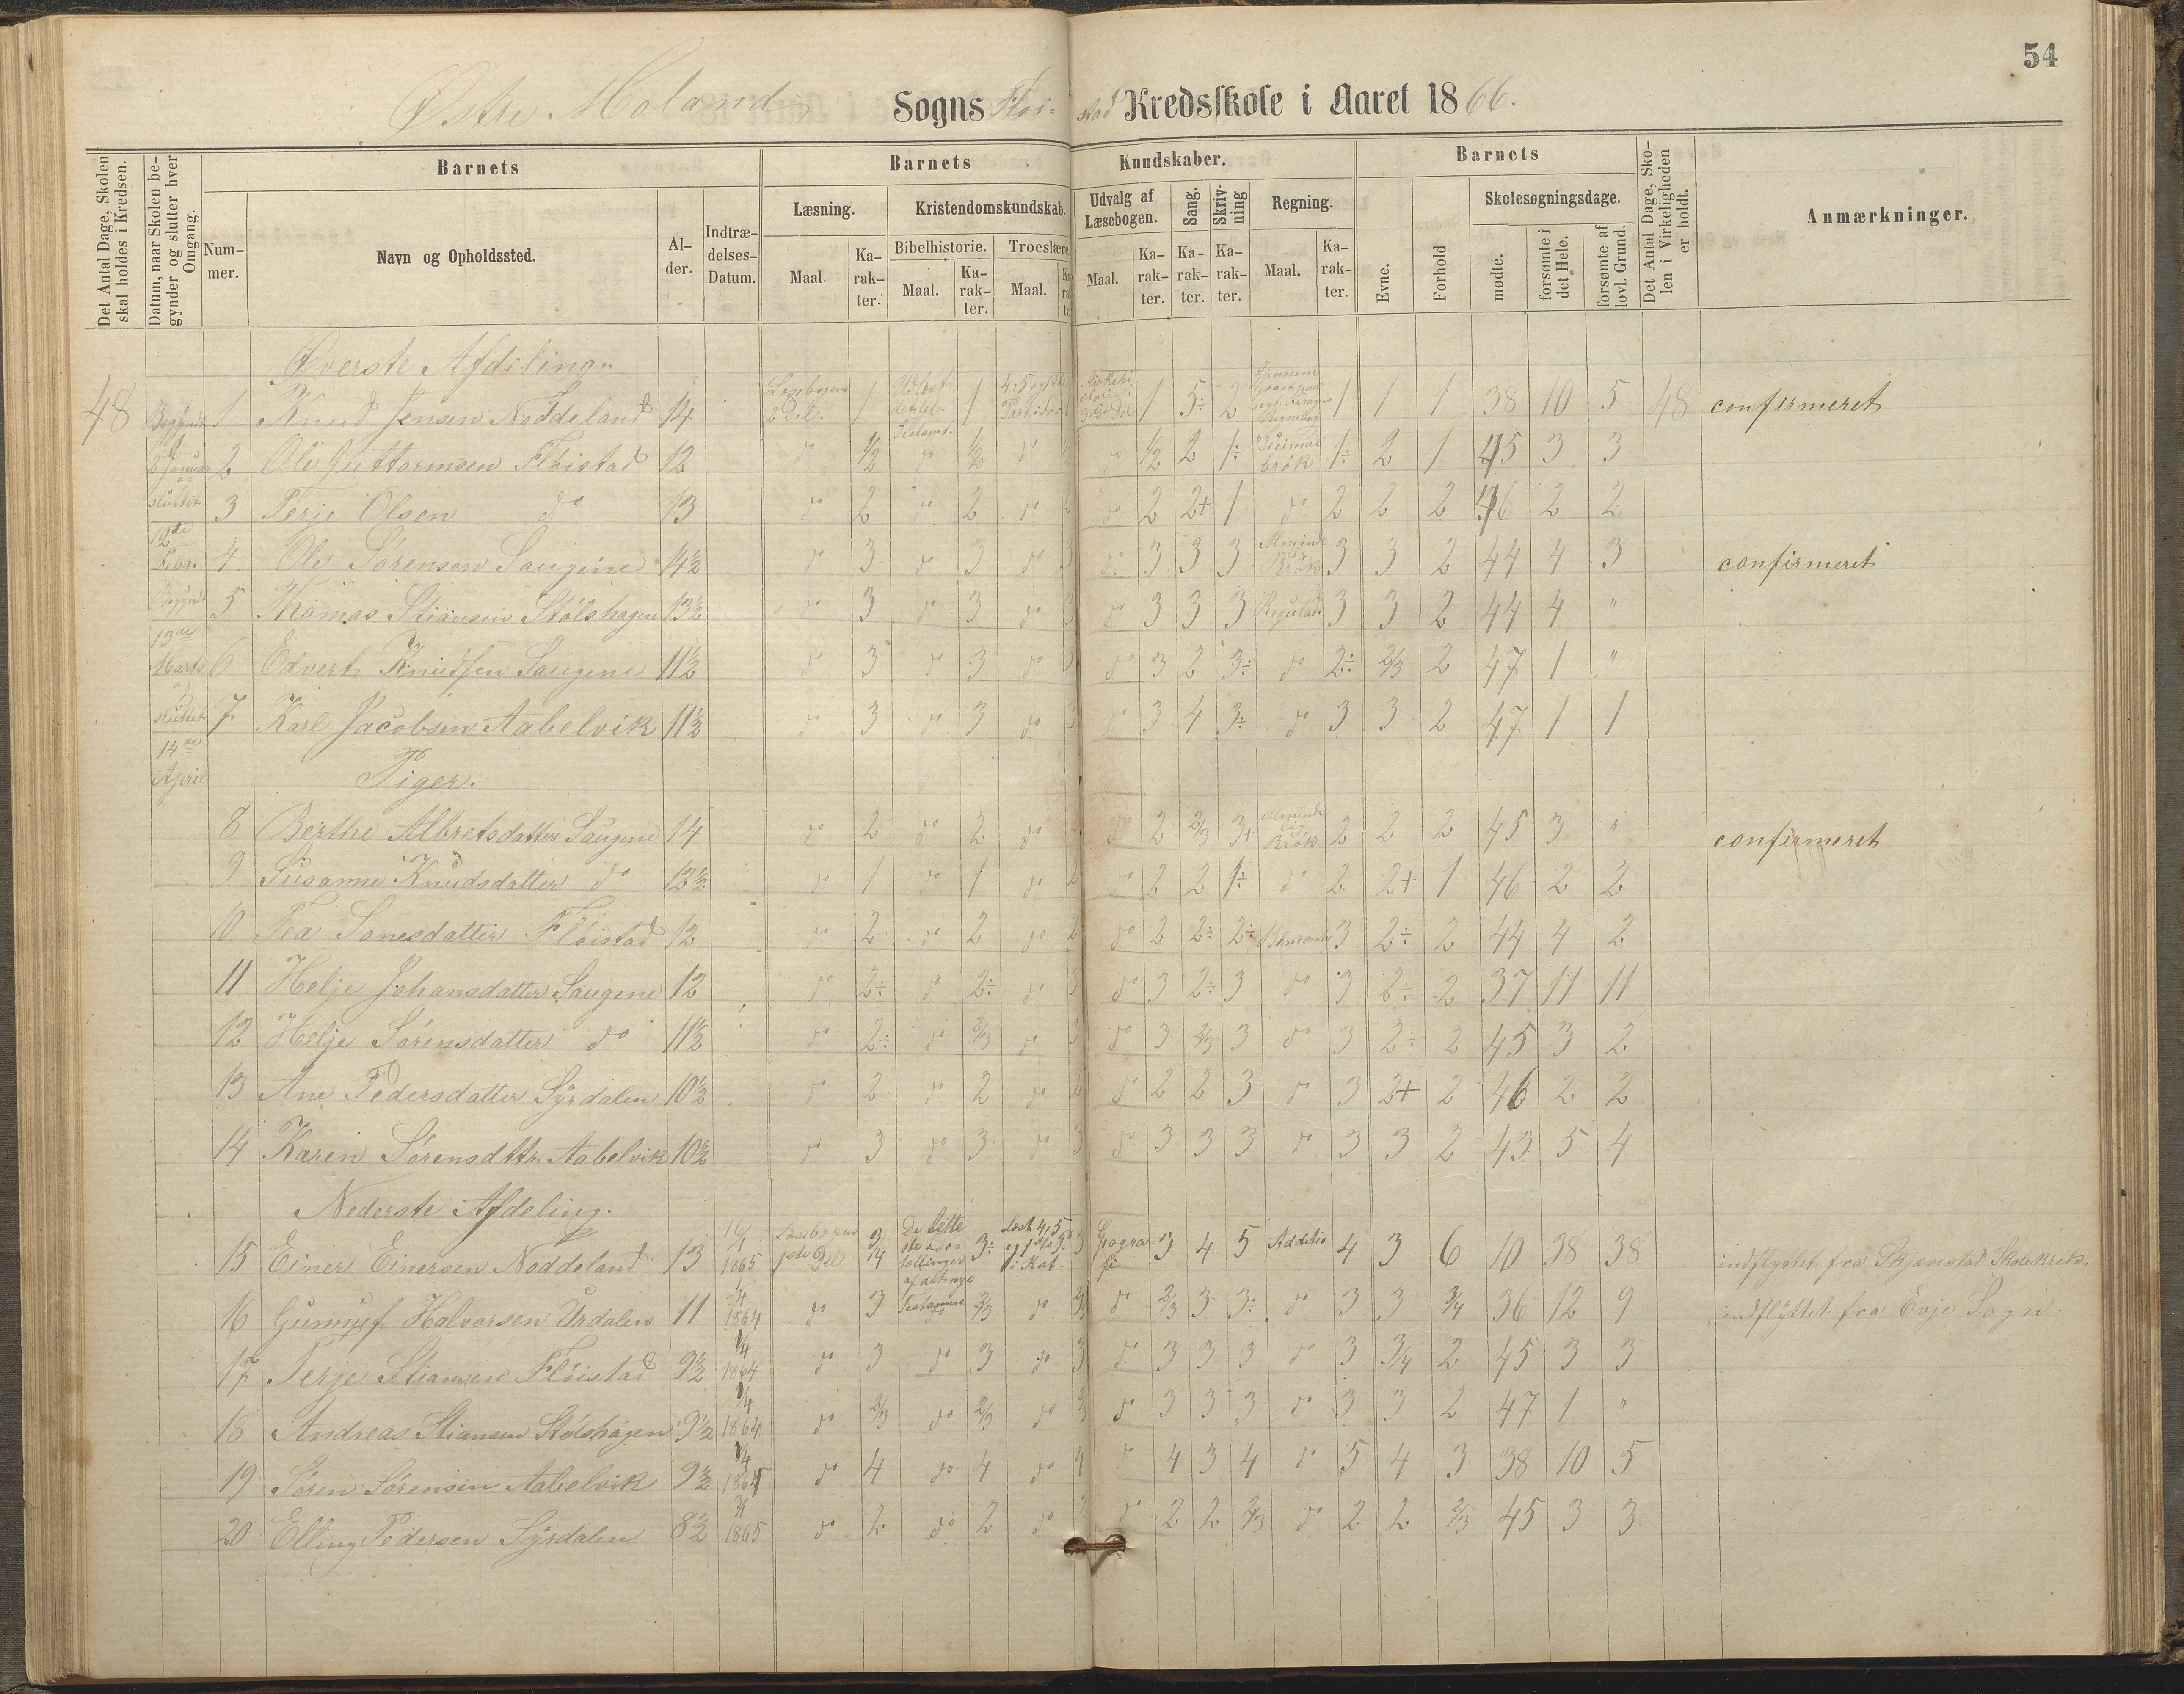 54
Østre Moland Sogns Fløi=stad Kredsskole i Aaret 1866.
Det Antal Dage, Skolen skal holdes i Kredsen.
Datum, naar Skolen begynder og slutter hver Omgang.
Barnets
Nummer.
Navn og Opholdssted.
Alder.
Indtrædelses-Datum.
Barnets Kundskaber.
Læsning.
Maal.
Karakter.
Kristendomskundskab.
Bibelhistorie.
Maal.
Karakter.
Troeslære
Maal.
Udvalg af Læsebogen.
Maal.
Karakter.
Sang.
Karakter.
Skrivning
Karakter.
Regning.
Maal.
Karakter.
Barnets
Evne.
Forhold
Skolesøgningsdage.
mødte.
forsømte i det Hele.
forsømte af lovl. Grund.
Det Antal Dage, Skolen i Virkeligheden er holdt.
Anmærkninger.
Øverste Afdeling.
48 Begyndt 1 Knud Jensen Noddeland 14 2 Del. 1 1 1 5÷ 2 1 1 1 38 10 5 48 confirmeret
3 Januar 2 Ole Guttormsen Fløistad 12 do 1/2 do 1/2 do do 1/2 2 1÷ brøk 1÷ 2 1 45 3 3
sluttet 3 Terje Olsen do 13 do 2 do 2 do do 2 2+ 1 do 2 2 2 46 2 2
12te Febr. 4 Ole Sørensen Saugene 14½ do 3 do 3 do 3 do 3 3 3 Brøk 3 3 2 44 4 3 confirmeret
Begyndt 5 Thomas Stiansen Stølshagen 13½ do 3 do 3 do 3 do 3 3 3 Regulad. 3 3 2 44 4 "
13de Marts 6 Edvert Knudsen Saugene 11½ do 3 do 3 do 3 do 3 2 3÷ do 2÷ 2/3 2 47 1 "
sluttet 7 Karl Jacobsen Aabelvik 11½ do 3 do 3 do 3 do 3 4 3÷ do 3 3 2 47 1 1
14de April
Piger.
8 Berthe Albretsdatter Saugene 14 do 2 do 2 do do 2 2/3 3+ Brøk 2 2 2 45 3 " confirmeret
9 Susanne Knudsdatter do 12½ do 1 do 1 do do 2 2 1÷ do 2 2+ 1 46 2 2
10 Tea Tonesdatter Fløistad 12 do 2 do 2 do 2 do 2 2÷ 2÷ 3 2÷ 2 44 4 2
11 Helje Johansdatter Saugene 12 do 2÷ do 2÷ do 3 do 3 2÷ 3 do 3 2÷ 2 37 11 11
12 Helje Sørensdatter do 11½ do 2÷ do 2/3 do 3 do 3 2/3 3 do 3 2÷ 2 45 3 2
13 Ane Pedersdatter Syrdalen 10½ do 2 do 2 do 2 do 2 2 3 do 3 2+ 2 46 2 2
14 Karen Sørensdttr. Aabelvik 10½ do 3 do 3 do 3 do 3 3 3 do 3 3 2 43 5 4
Nederste Afdeling.
15 Einer Einersen Noddeland 13 16/1 1865 Læsebogens 1ste Del 3/4 De lette 3÷ Læst 4, 5 i Kat- 3 Geografi 3 4 5 Additio 4 3 6 10 38 38 indflyttet fra Skjævestad Skolekreds.
16 Gunnuf Halvorsen Urdalen 11 1864 do 3 2/3 do 2/3 do 2/3 3 3÷ do 3 3 3/4 36 12 9 indflyttet fra Evje Sogn
17 Terje Stiansen Fløistad 9½ 1/4 1864 do 3 do 3 do 3 do 3 3 3 do 3 3/4 2 45 3 3
18 Andreas Stiansen Stølshagen 9½ 1/4 1864 do 2/3 do 2/3 do do 3 3 3 do 3 3 2 47 1 "
19 Søren Sørensen Aabelvik 9½ 1/4 do 4 do 4 do 4 do 4 3 4 do 5 4 3 38 10 5
20 Elling Pedersen Syrdalen 8½ 1865 do 2 do 2 do 2 do 2 2 2/3 do 2 2 2/3 45 3 3